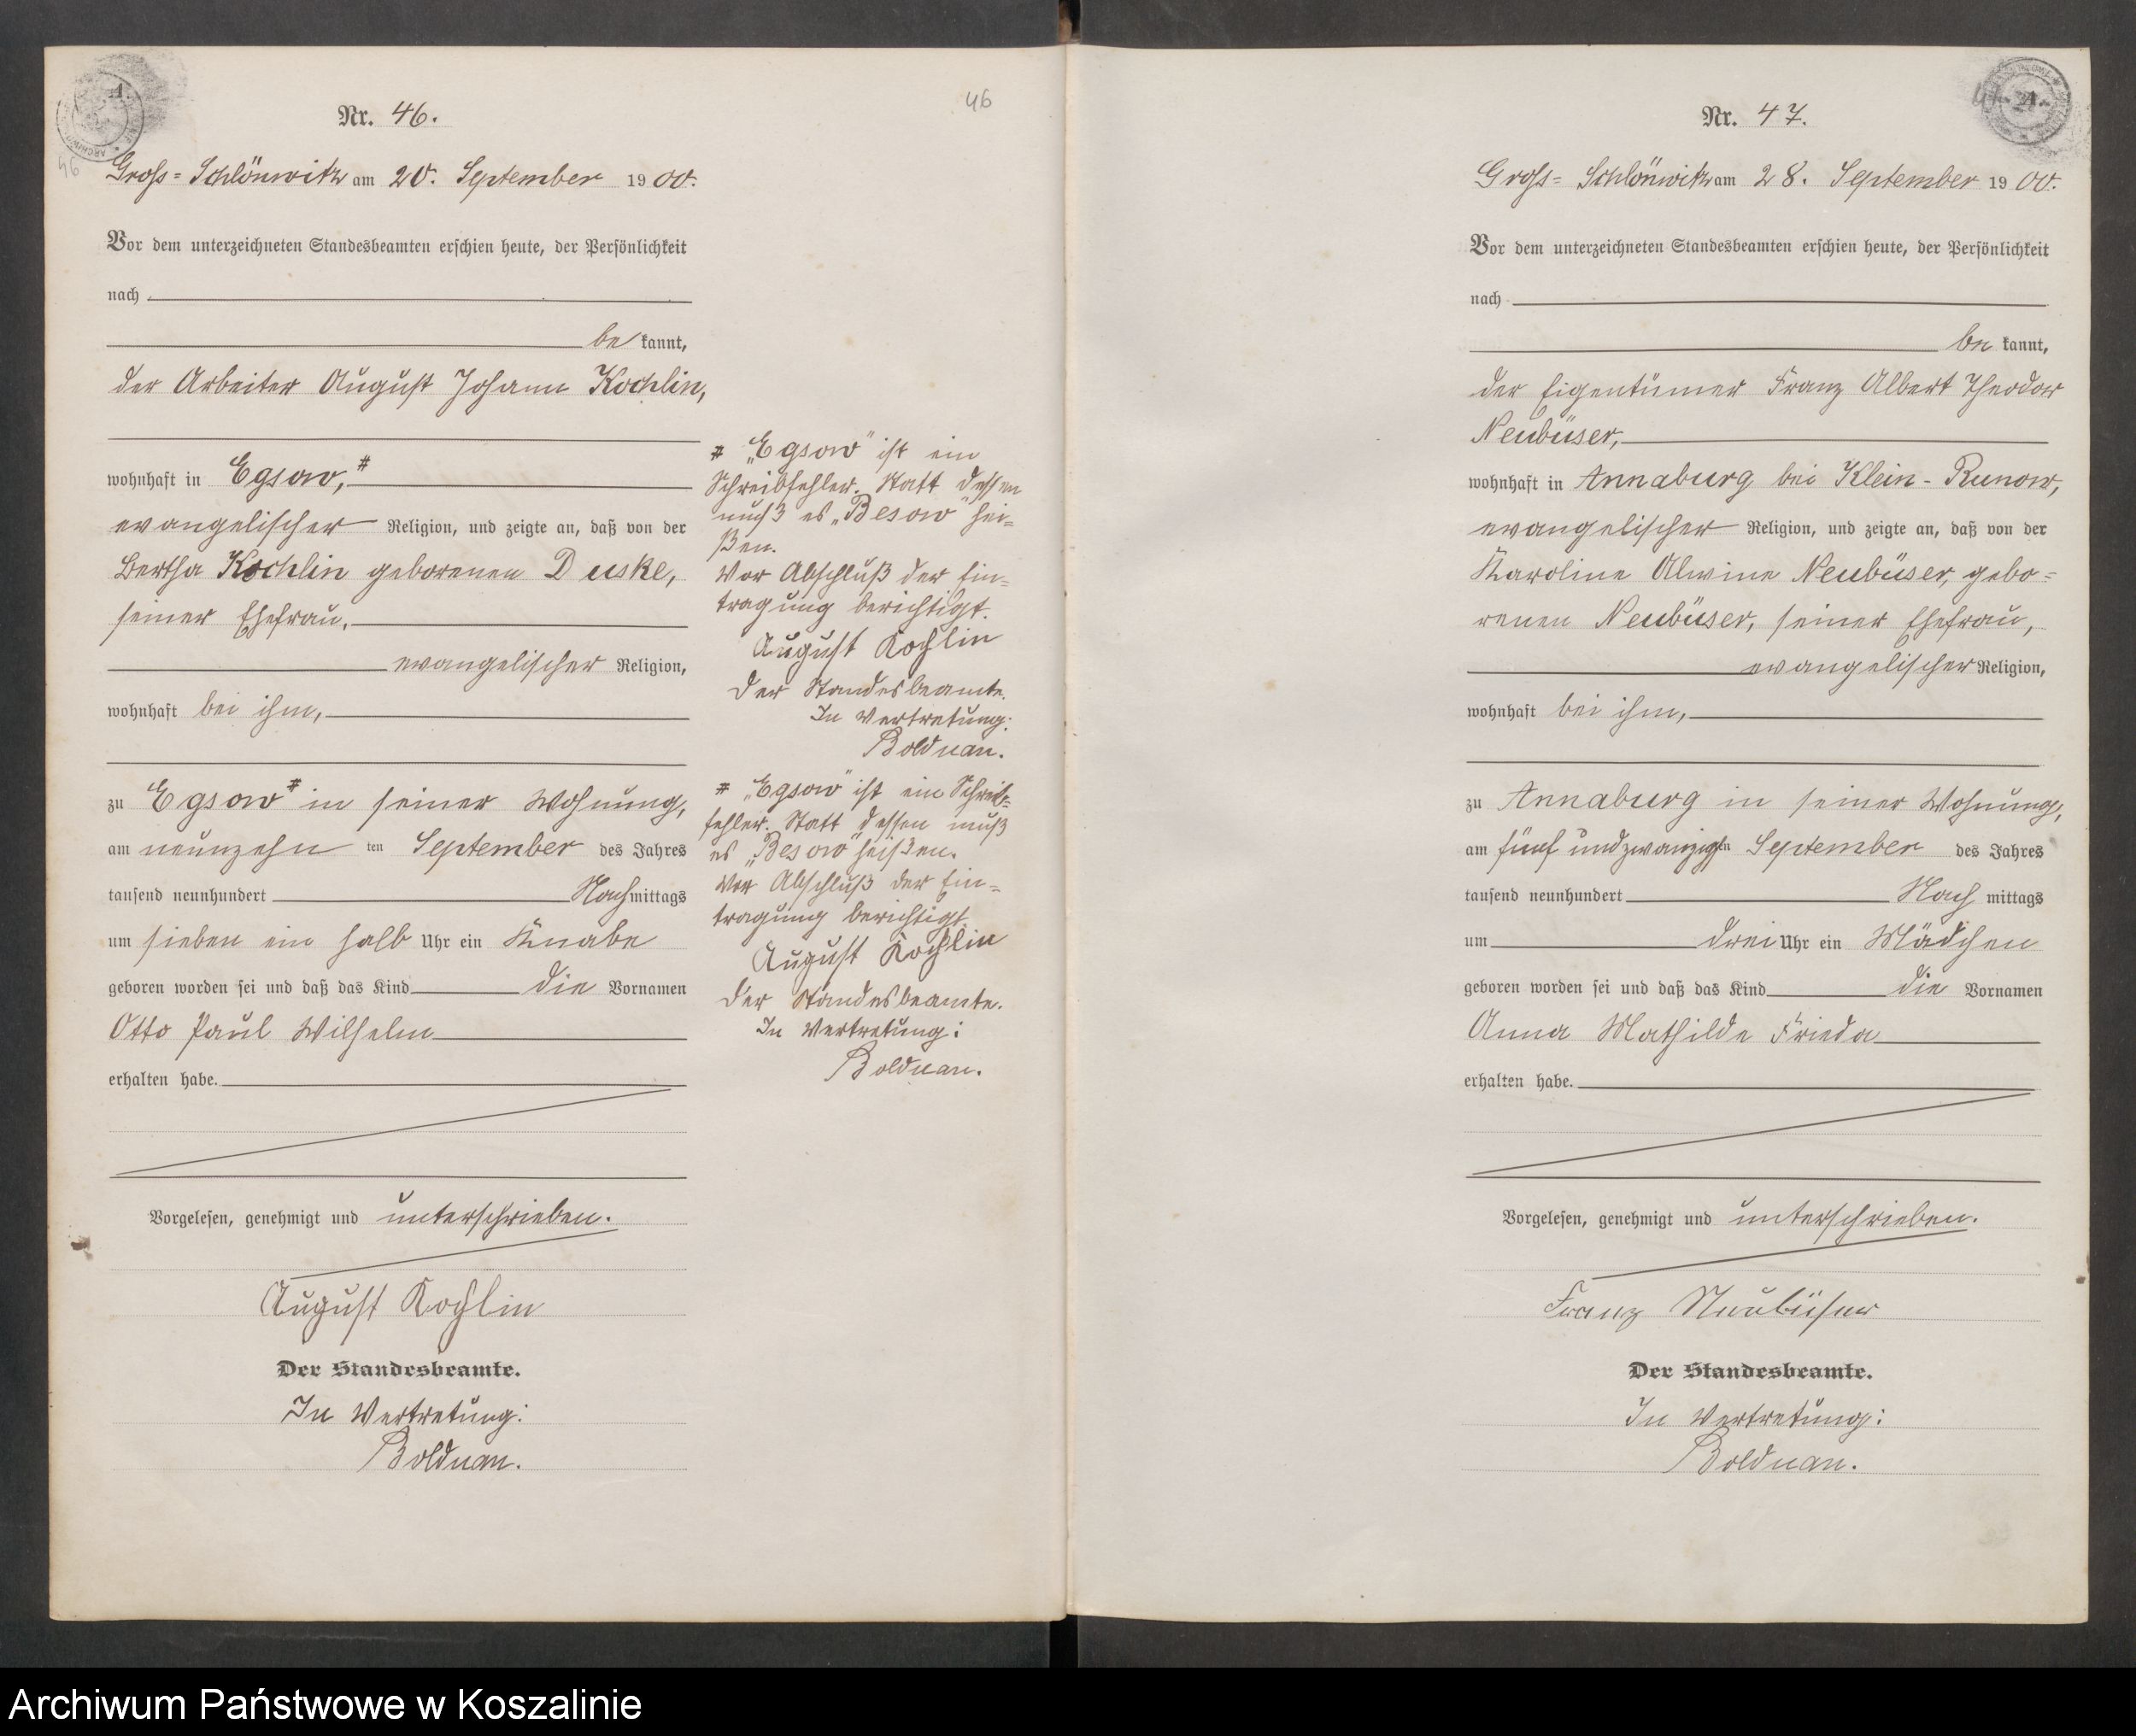 46
Nr. 46.
Gross-Schlönwitz am 20. September 1900.
Vor dem unterzeichneten Standesbeamten erschien heute, der Persönlichkeit
nach
be kannt,
der Arbeiter August Johann Kochlin,
wohnhaft in Egsow,#
evangelischer Religion, und zeigte an, daß von der
Bertha Kochlin geborenen Duske,
seiner Ehefrau,
evangelischer Religion,
wohnhaft bei ihm,
zu Egsow# in seiner Wohnung,
am neunzehn ten September des Jahres
tausend neunhundert Nachmittags
um sieben ein halb Uhr ein Knabe
geboren worden sei und daß das Kind die Vornamen
Otto Paul Wilhelm
erhalten habe.
Vorgelesen, genehmigt und unterschrieben.
August Kochlin
Der Standesbeamte.
In Vertretung:
Bolduan.
# „Egsow" ist ein
Schreibfehler. Statt dessen
muß es „Besow" hei-
ßen.
Vor Abschluß der Ein-
tragung berichtigt.
August Kochlin
Der Standesbeamte.
In Vertretung:
Bolduan.
# „Egsow" ist ein Schreib-
fehler. Statt dessen muß
es „Besow" heißen.
Vor Abschluß der Ein-
tragung berichtigt.
August Kochlin
Der Standesbeamte.
In Vertretung:
Bolduan.
Nr. 47.
Gross-Schlönwitz am 28. September 1900.
Vor dem unterzeichneten Standesbeamten erschien heute, der Persönlichkeit
nach
be kannt,
der Eigentümer Franz Albert Theodor
Neubüser,
wohnhaft in Annaburg bei Klein-Runow,
evangelischer Religion, und zeigte an, daß von der
Karoline Alwine Neubüser, gebo-
renen Neubüser, seiner Ehefrau,
evangelischer Religion,
wohnhaft bei ihm,
zu Annaburg in seiner Wohnung,
am fünf und zwanzigsten September des Jahres
tausend neunhundert Nach mittags
um drei Uhr ein Mädchen
geboren worden sei und daß das Kind die Vornamen
Anna Mathilde Frieda
erhalten habe.
Vorgelesen, genehmigt und unterschrieben.
Franz Neubüser
Der Standesbeamte.
In Vertretung:
Bolduan.
Archiwum Państwowe w Koszalinie